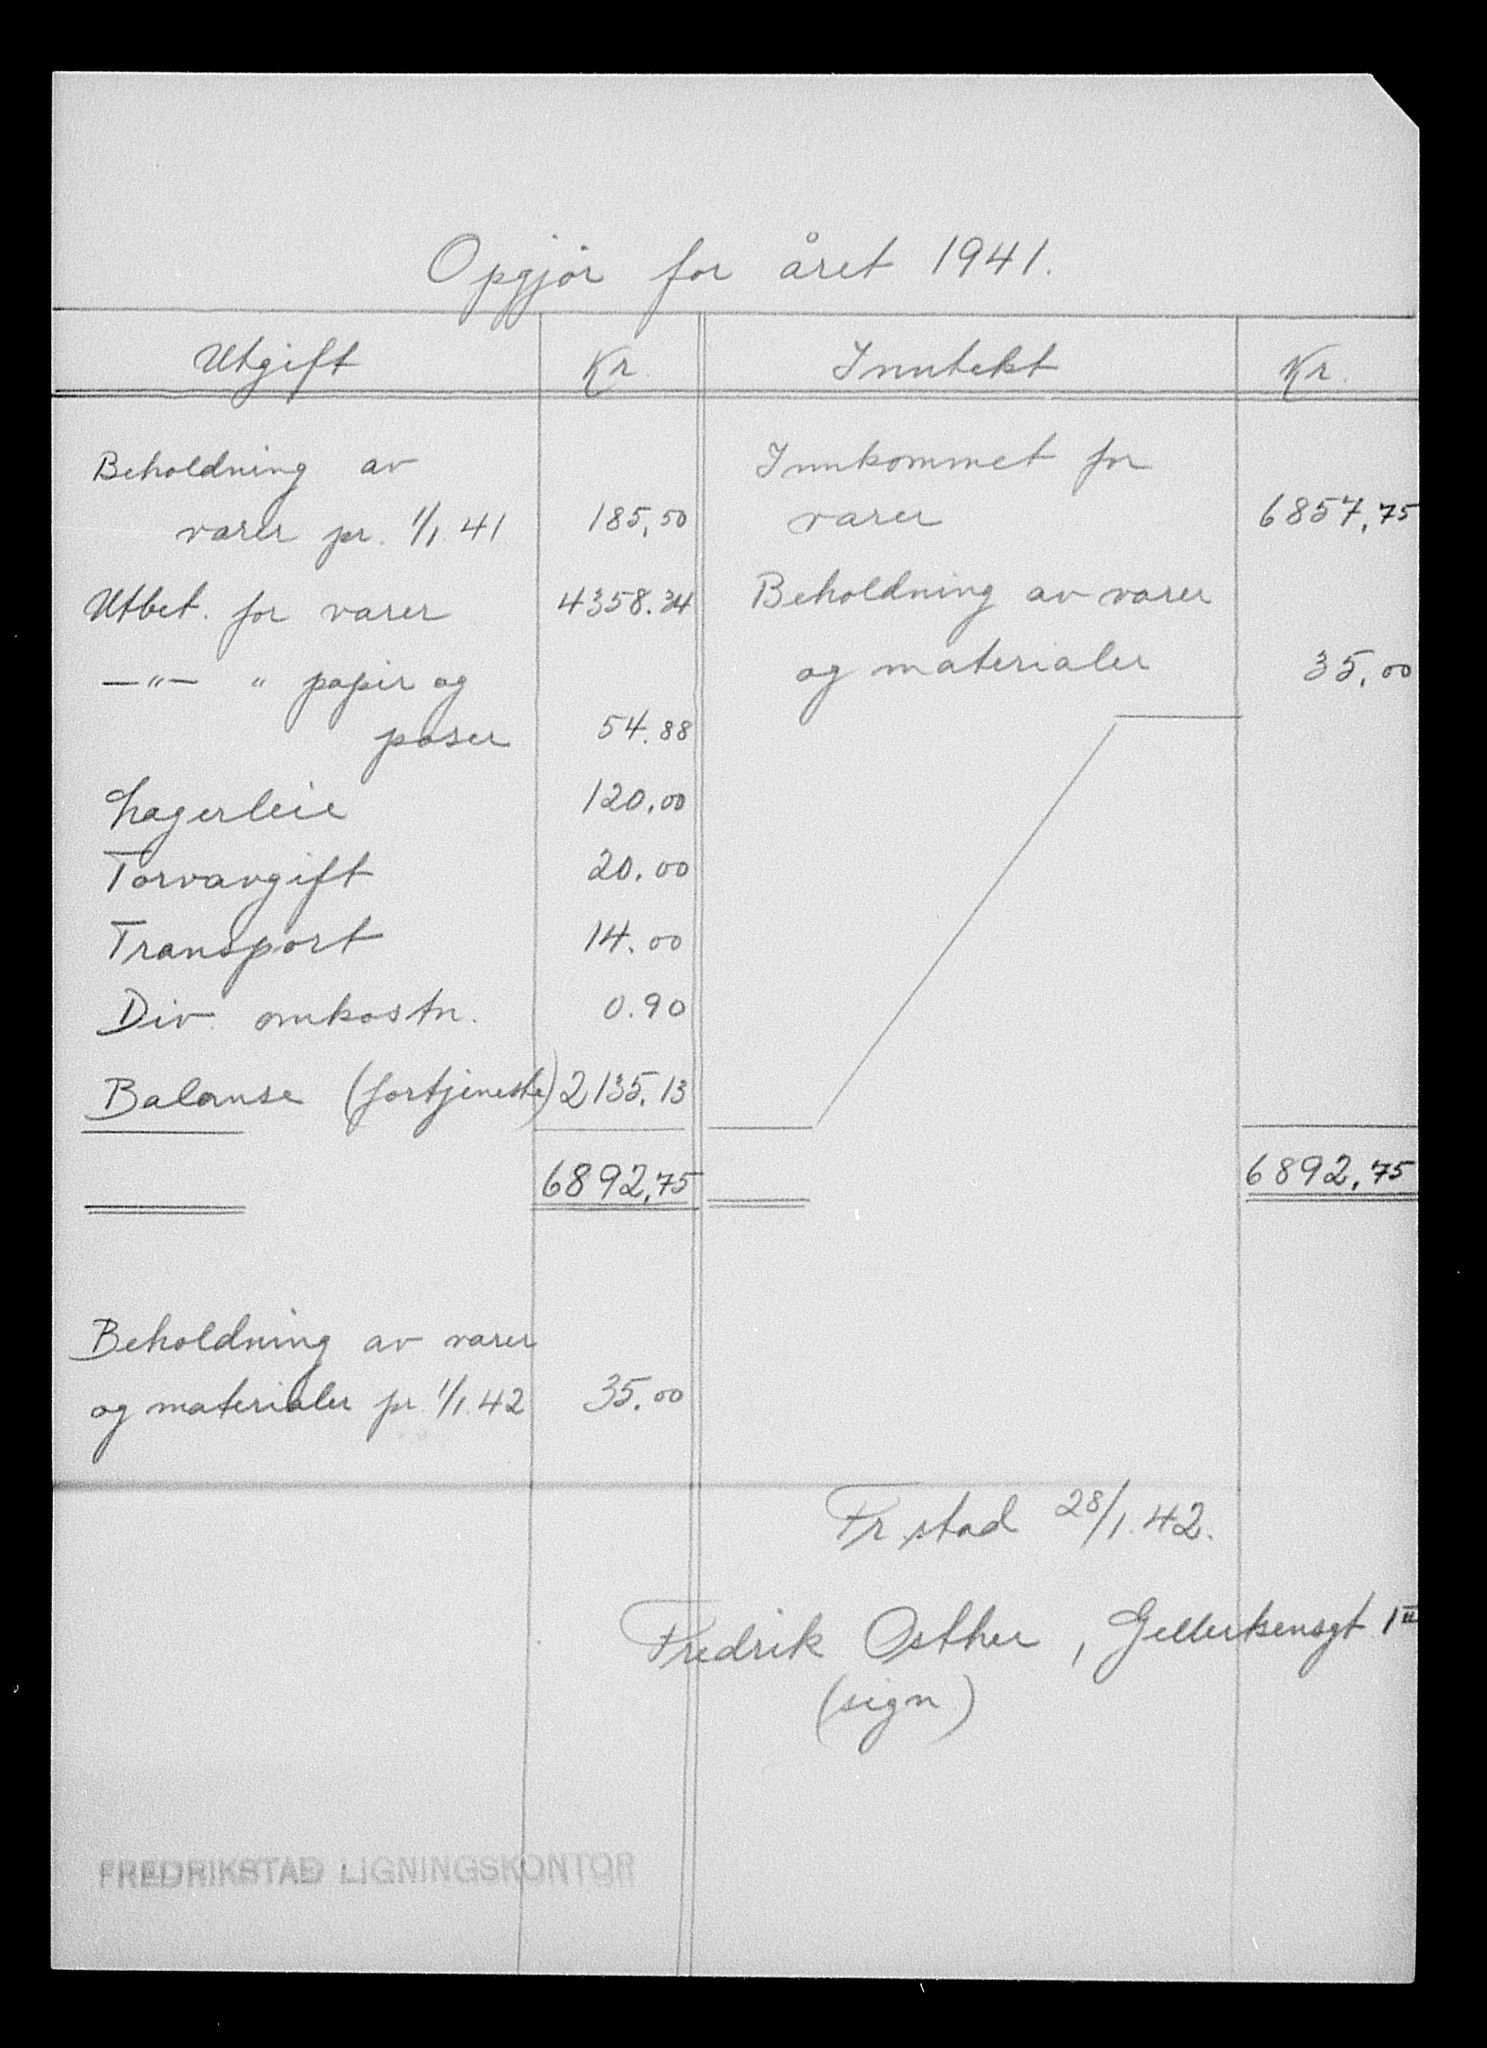 Opgjör for året 1941.
Utgift Kr. Inntekt Kr.
Beholdning av
varer pr. 1/1 41 185,50
Utbet. for varer 4358.34
—"— " papir og
poser 54.88
Lagerleie 120,00
Torvavgift 20.00
Transport 14.00
Div. omkostn. 0.90
Balanse (fortjeneste) 2135.13
6892,75
Innkommet for
varer 6857,75
Beholdning av varer
og materialer 35,00
6892,75
Beholdning av varer
og materialer pr. 1/1 42 35,00
Fr.stad 28/1.42.
Fredrik Osther, Gellertsensgt 1 III
(sign)
FREDRIKSTAD LIGNINGSKONTOR